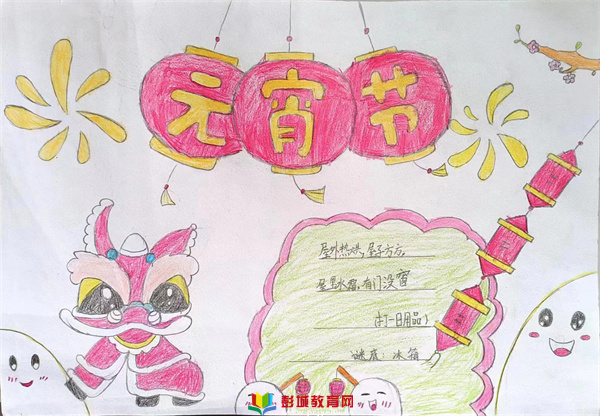 元宵节
屋外热烘,屋子方方,
屋里冰霜,有门没窗
(打一日用品)
谜底:冰箱
彭城教育网